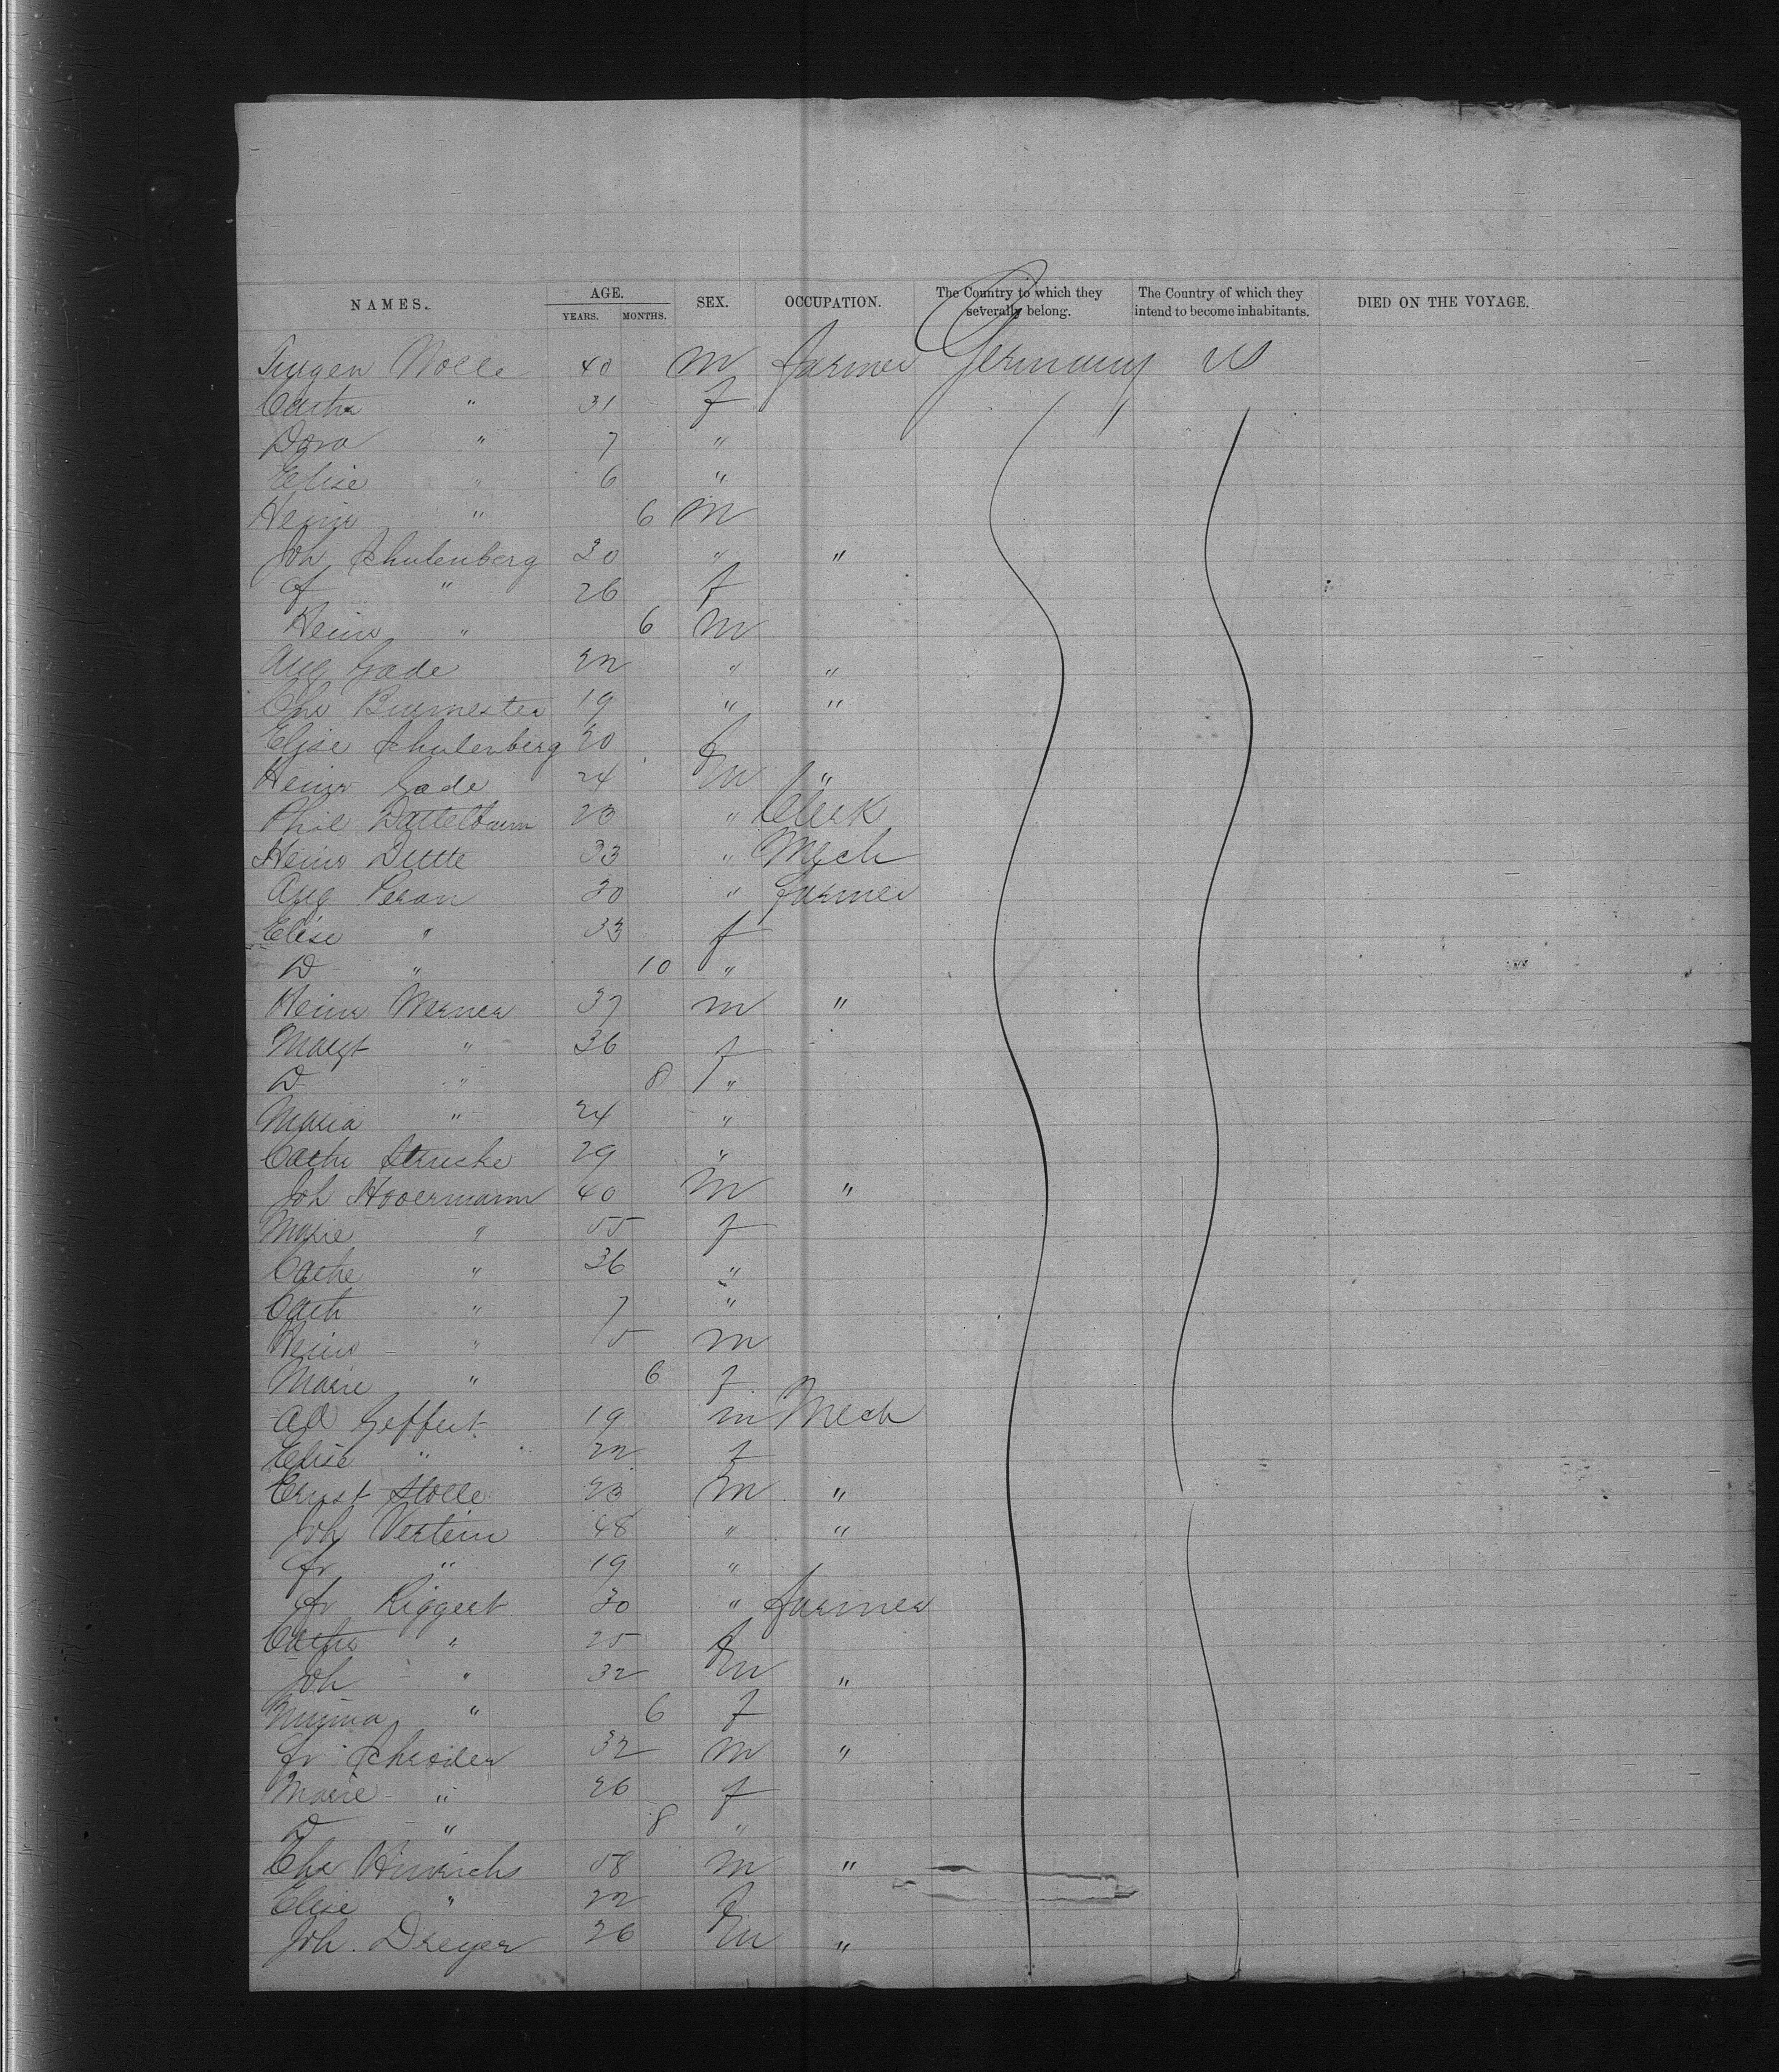 NAMES. AGE. YEARS. MONTHS. SEX. OCCUPATION. The Country to which they severally belong. The Country of which they intend to become inhabitants. DIED ON THE VOYAGE.
Nolle 40 m farmer Germany US
Cath " 31 f
Dora " 7 "
Elise " 6 "
Heinr " 6 m
Joh Schulenberg 30 " "
" 26 f
Heinr " 6 m
Aug Gade 22 " "
Chr Burmester 19 " "
Elise Schulenberg 20 f
Heinr Gade 24 m "
Phil Dattelbaum 23 " Clerk
Heinr 33 " Mech
Aug Peran 30 " farmer
Elise " 33 f
D " 10 "
Heinr Werner 37 m "
Margt " 36 f
D " 8 "
Maria " 24 "
Cath Strucke 29 "
Joh Hovermann 40 m "
Marie " 55 f
Cathe " 36 "
Cath " 7 "
Heinr " 5 m
Marie " 6 f
Ad Geffert 19 m Mech
Elise " 22 f
Ernst Stolle 23 m "
Joh Vertein 48 " "
Fr " 19 "
Fr Riggert 30 " farmer
Cath " 25 f
Joh " 32 m "
Minna " 6 f
Fr Schroder 32 m "
Marie " 26 f
D " 8 "
Chr Hinrichs 58 m "
Elise " 22 f
Joh. Dreyer 26 m "